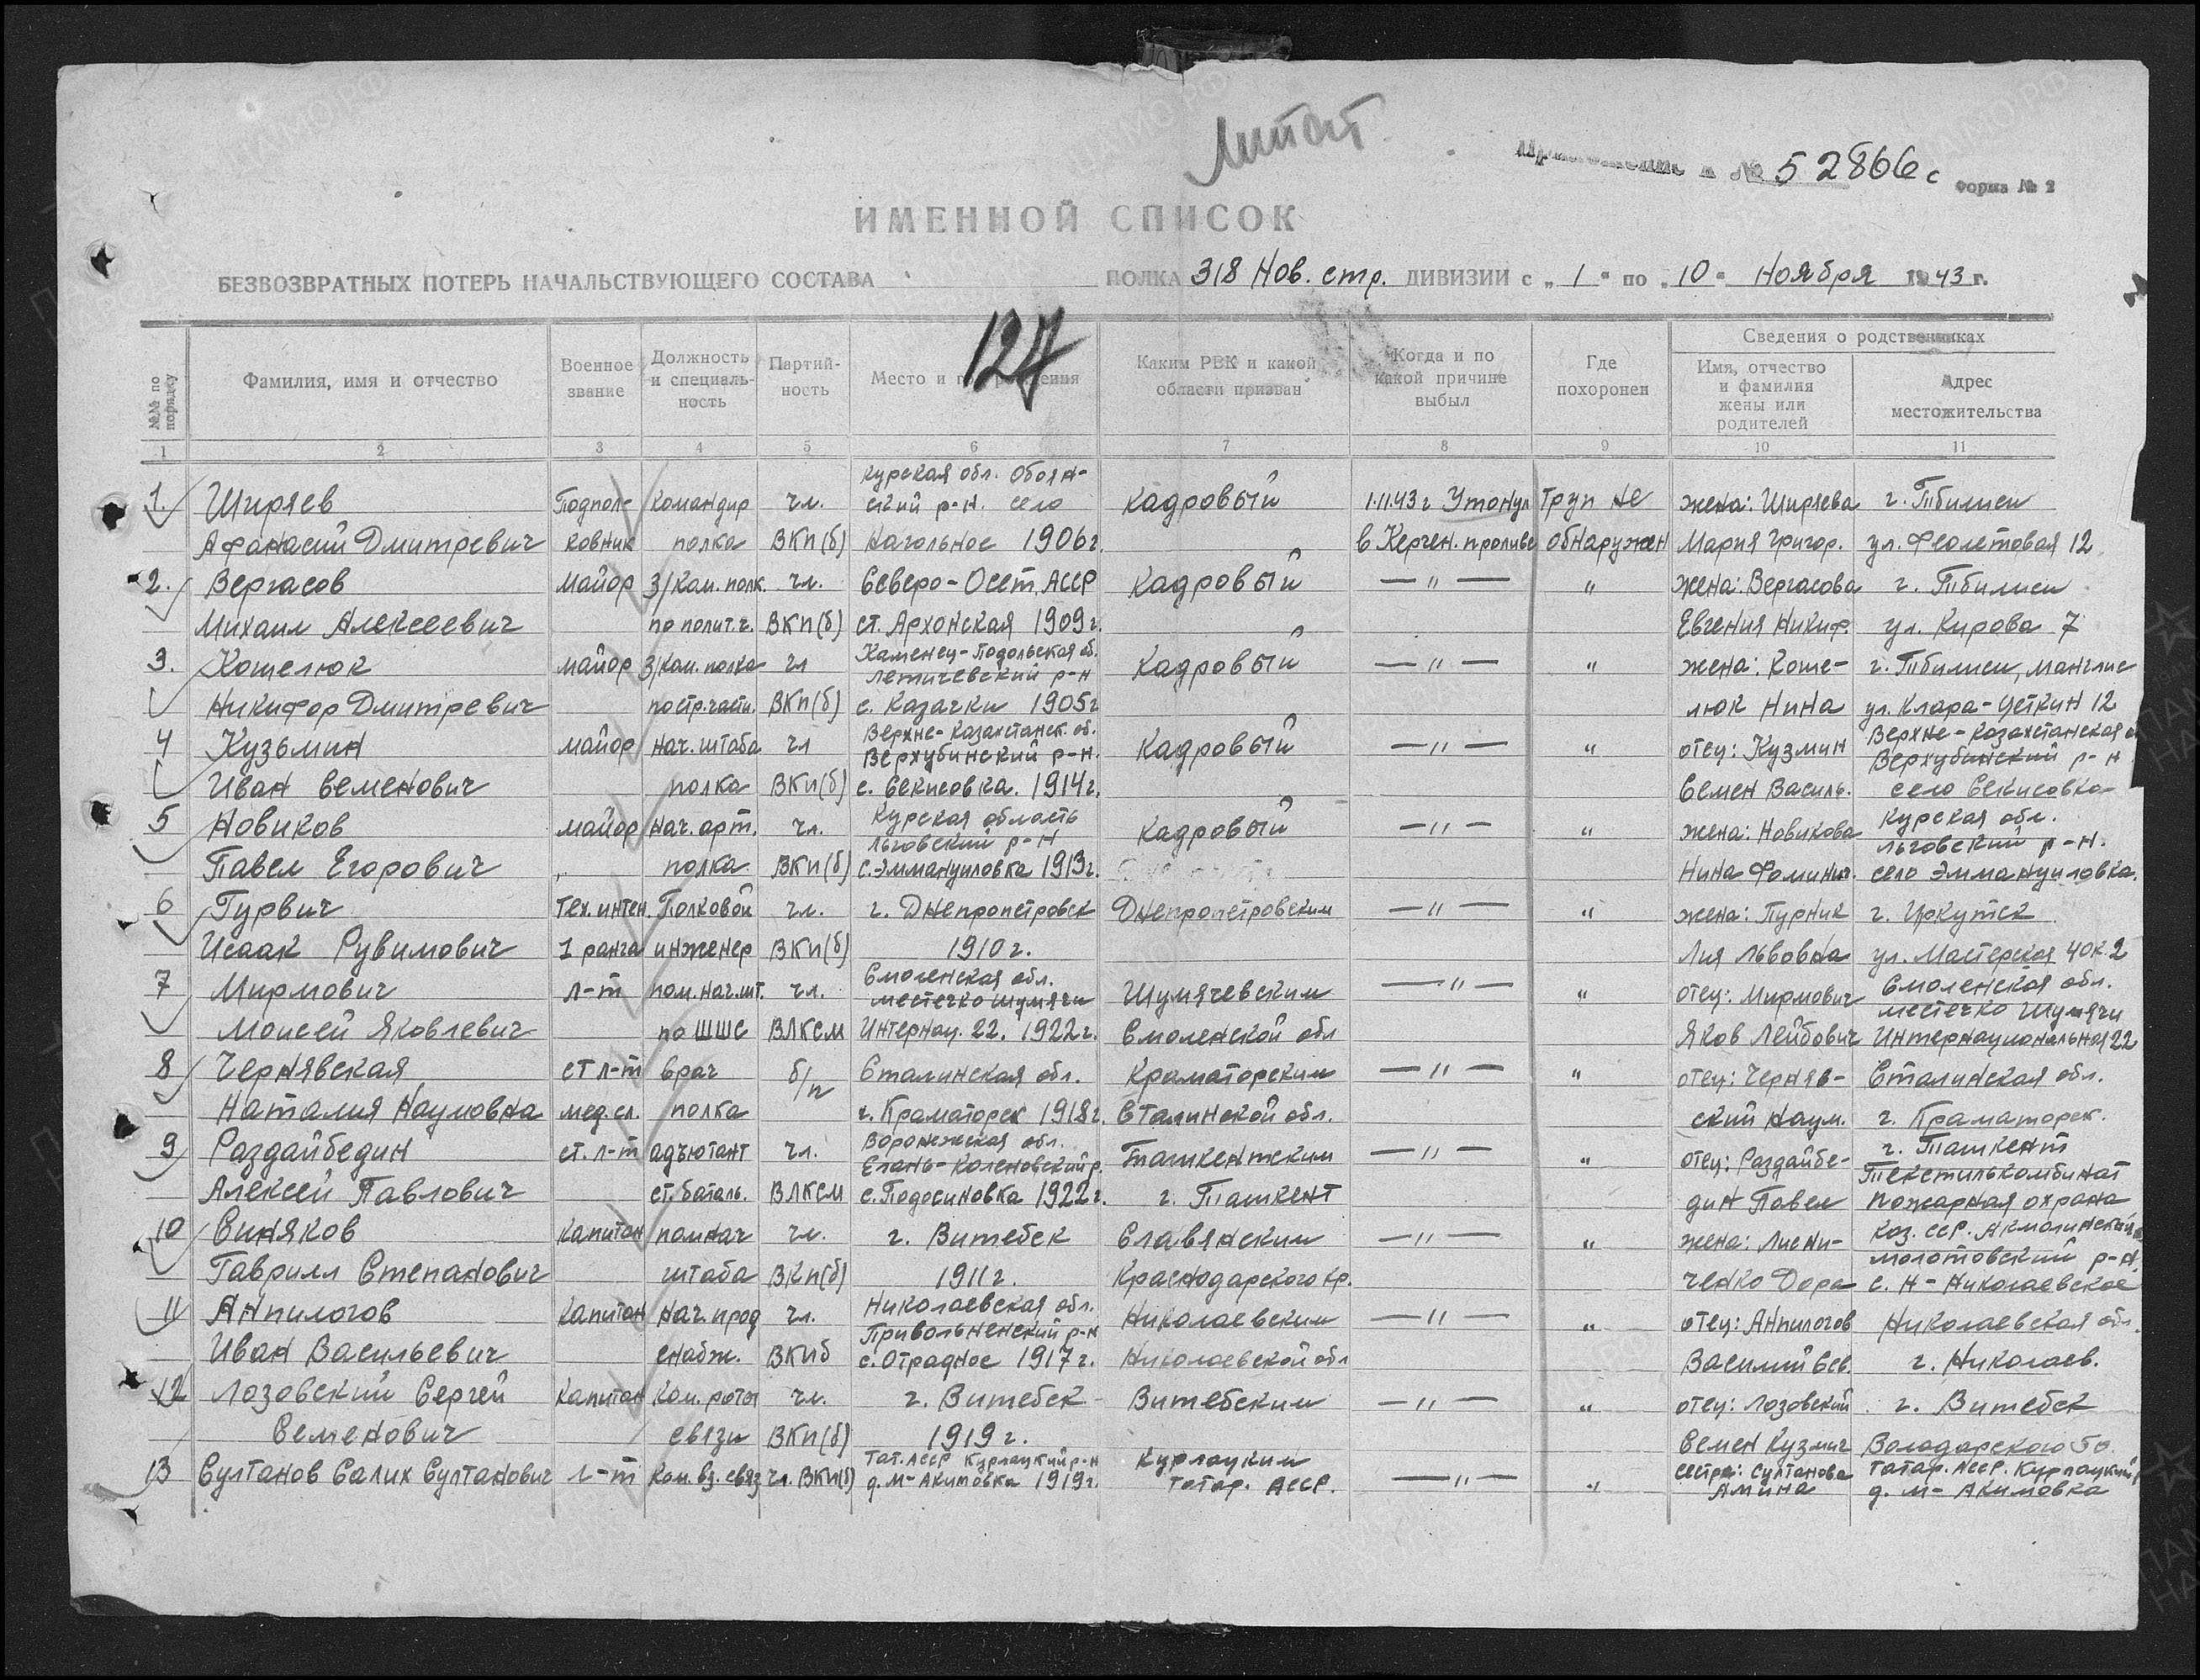 Литот
Приложение к № 52866с Форма № 2
ИМЕННОЙ СПИСОК
БЕЗВОЗВРАТНЫХ ПОТЕРЬ НАЧАЛЬСТВУЮЩЕГО СОСТАВА ПОЛКА 318 Нов. стр. ДИВИЗИИ с „1" по „10" Ноября 1943 г.
127
№№ по порядку Фамилия, имя и отчество Военное звание Должность и специальность Партийность Место и г рождения Каким РВК и какой области призван Когда и по какой причине выбыл Где похоронен Сведения о родственниках
Имя, отчество и фамилия жены или родителей Адрес местожительства
1 2 3 4 5 6 7 8 9 10 11
1. Ширяев Подпол- командир чл. Курская обл. Обоян-ский р-н. село кадровый 1.11.43г Утонул Труп не жена: Ширяева г. Тбилиси
Афанасий Дмитревич ковник полка ВКП(б) Нагольное 1906г. в Керчен. проливе обнаружен Мария Григор. ул. Феолетовая 12
2. Вергасов майор З/ком. полк. чл. Северо-Осет. АССР кадровый —"— " жена: Вергасова г. Тбилиси
Михаил Алексеевич по полит.ч. ВКП(б) ст. Архонская 1909г. Евгения Никиф. ул. Кирова 7
3. Кошелюк майор З/ком. полка чл Каменец-Подольская об. Летичевский р-н кадровый —"— " жена: Коше- г. Тбилиси, Манглис
Никифор Дмитревич по стр.части. ВКП(б) с. Казачки 1905г люк Нина ул. Клара-Цеткин 12
4 Кузьмин майор нач. штаба чл Верхне-Казахстанск. об. Верхубинский р-н. кадровый —"— " отец: Кузмин Верхне-Казахстанская о Верхубинский р-н
Иван Семенович полка ВКП(б) с. Секисовка. 1914г. Семен Василь. село Секисовка
5 Новиков майор нач. арт. чл. Курская область Льговский р-н кадровый —"— " жена: Новикова Курская обл. Льговский р-н.
Павел Егорович полка ВКП(б) с. Эммануиловка 1913г. Нина Фоминич. село Эммануиловка.
6 Гурвич Тех. интен. Полковой чл. г. Днепропетровск Днепропетровским —"— " жена: Пурник г. Иркутск
Исаак Рувимович 1 ранга инженер ВКП(б) 1910г. Лия Львовна ул. Мастерская 40 к.2
7 Мирмович л-т пом. нач. шт. чл. Смоленская обл. местечко Шумячи Шумячевским —"— " отец: Мирмович Смоленская обл. местечко Шумячи
Моисей Яковлевич по ШШС ВЛКСМ Интернац. 22. 1922г. Смоленской обл Яков Лейбович Интернациональная 22
8 Чернявская ст л-т врач б/п Сталинская обл. Краматорским —"— " отец: Черняв- Сталинская обл.
Наталия Наумовна мед. сл. полка г. Краматорск 1918г. Сталинской обл. ский Наум. г. Краматорск.
9 Раздайбедин ст. л-т адъютант чл. Воронежская обл. Елань-Коленовский р. Ташкентским —"— " отец: Раздайбе- г. Ташкент Текстилькомбинат
Алексей Павлович ст. баталь. ВЛКСМ с. Подосиновка 1922г. г. Ташкент дин Павел пожарная охрана
10 Синяков капитан пом нач чл. г. Витебск Славянским —"— " жена: Лисни- Каз. ССР. Акмолинский молотовский р-н.
Гаврилл Степанович штаба ВКП(б) 1911г. Краснодарского кр. ченко Дора с. Н-Николаевское
11 Анпилогов капитан нач. прод чл. Николаевская обл. Привольненский р-н Николаевским —"— " отец: Анпилогов Николаевская обл.
Иван Васильевич снабж. ВКПб с. Отрадное 1917г. Николаевской обл Василий Сев. г. Николаев.
12 Лозовский Сергей капитан ком. роты чл. г. Витебск Витебским —"— " отец: Лозовский г. Витебск
Семенович связи ВКП(б) 1919г. Семен Кузмич Володарского 50.
13 Султанов Салих Султанович л-т ком. вз. связ чл. ВКП(б) Тат. АССР Курлауцкий р-н д. М-Акимовка 1919г. Курлауцким татар. АССР. —"— " сестра: Султанова Амина Татар. АССР. Курлауцкий д. М-Акимовка